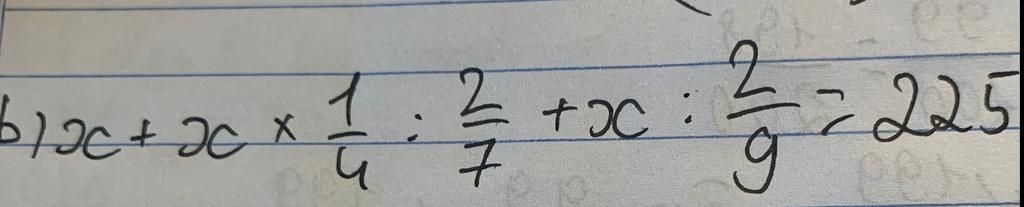 b) x + x × 1/4 : 2/7 + x : 2/9 = 225